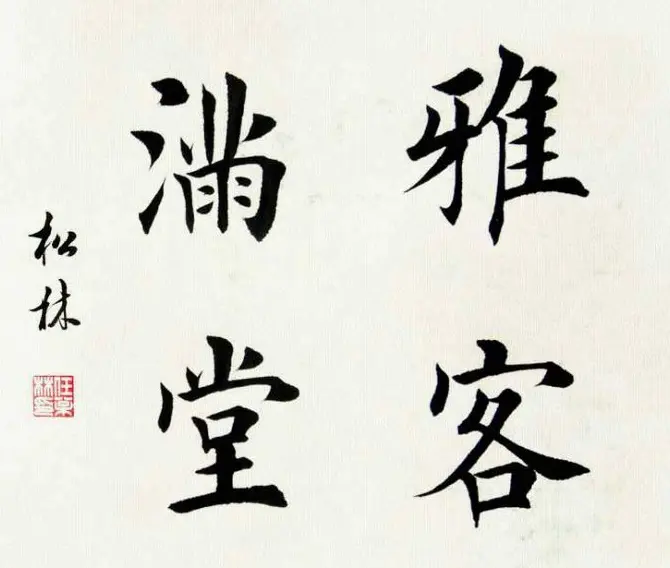 雅客
滿堂
松林